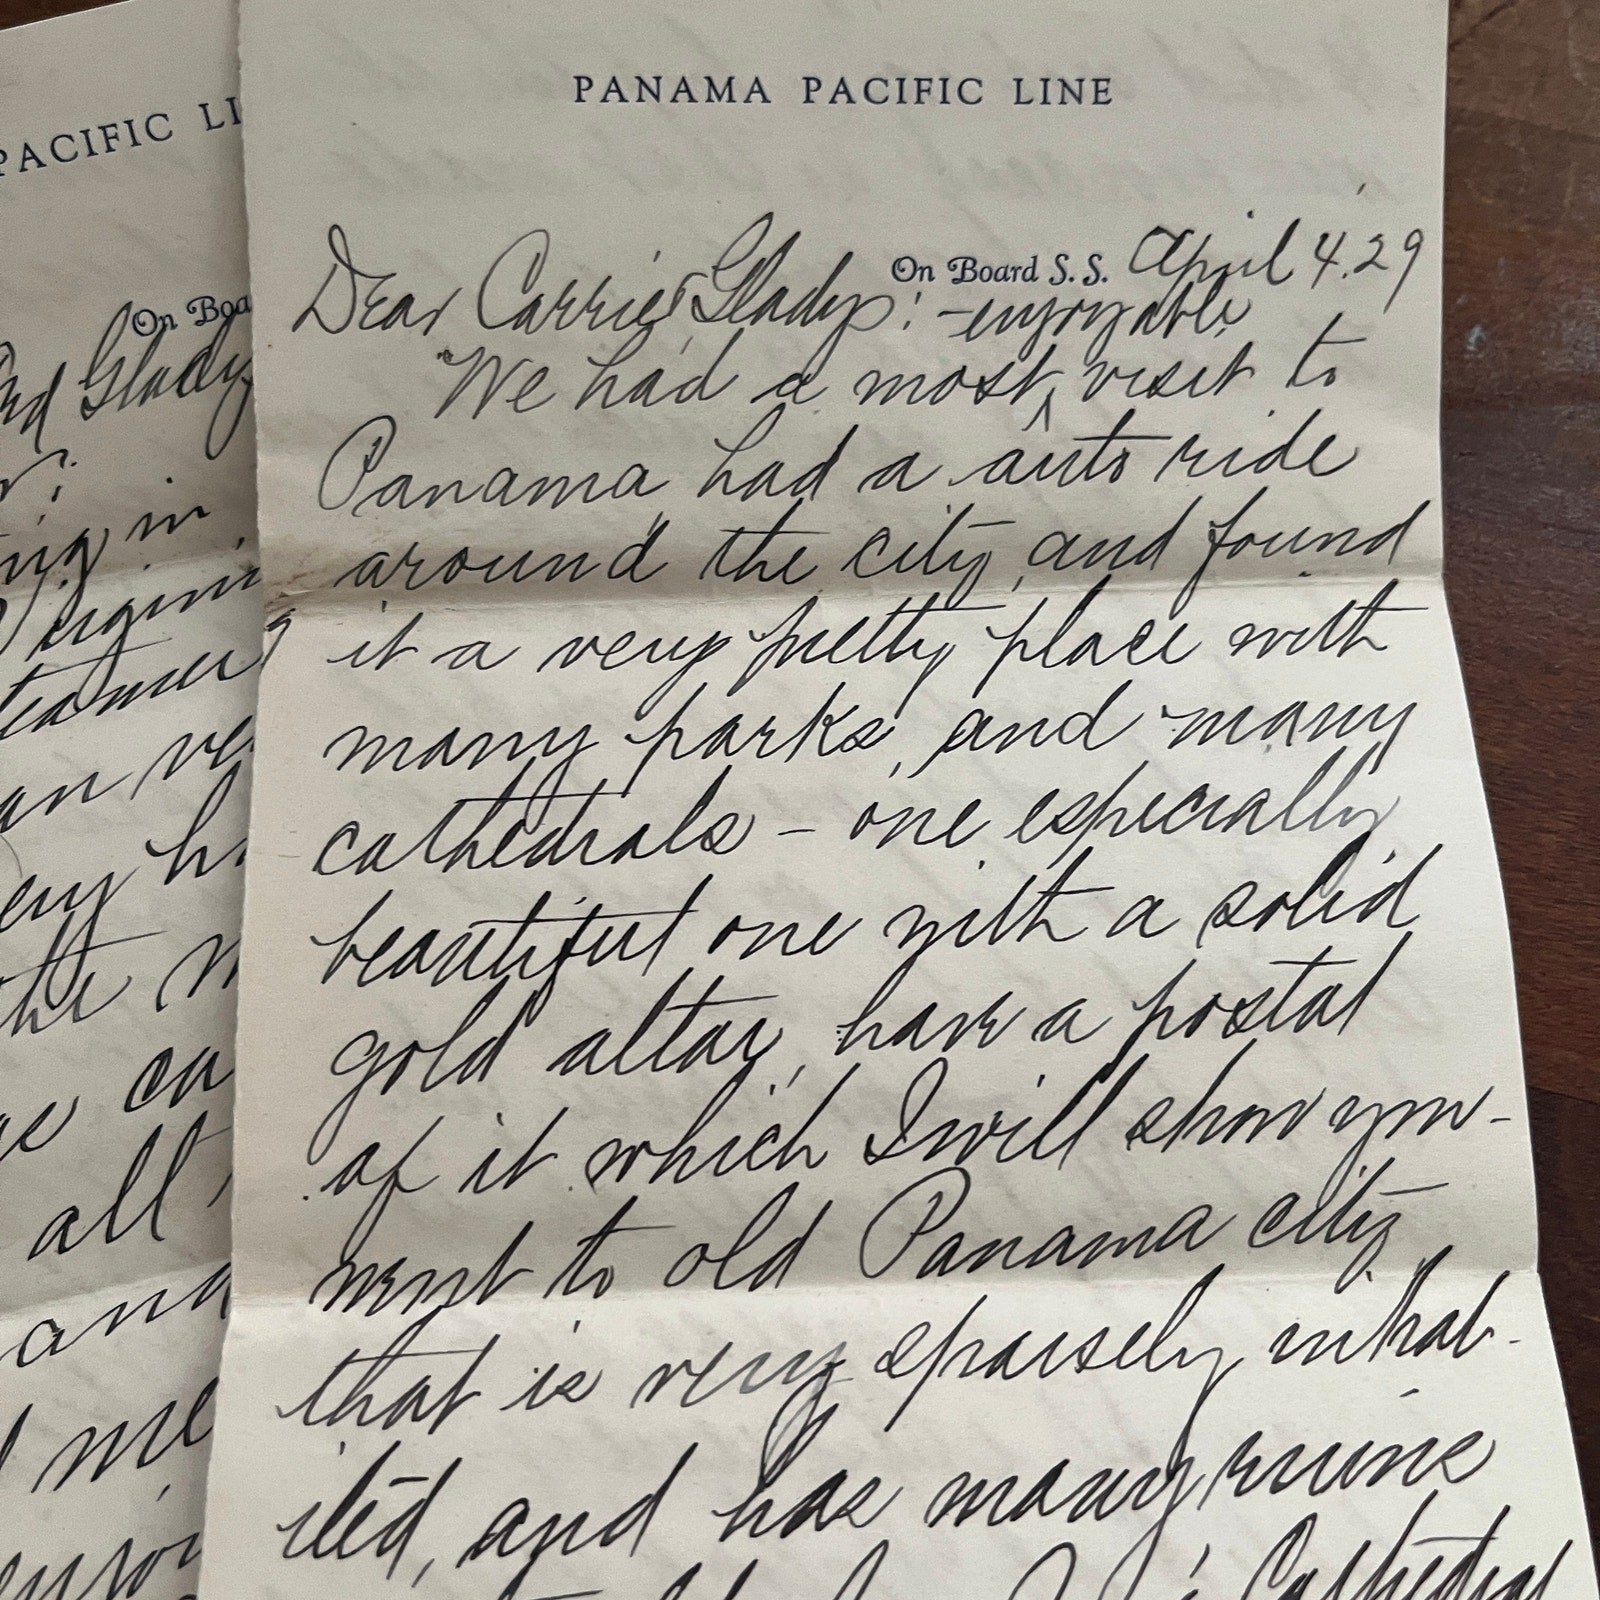 PANAMA PACIFIC LINE
On Board S.S. April 4.29
Dear Carrie & Gladys: -enjoyable
We had a most ^ visit to
Panama, had a auto ride
around the city, and found
it a very pretty place with
many parks, and many
cathedrals - one especially
beautiful one with a solid
gold altar, have a postal
of it which I will show you -
went to old Panama city
that is very sparsely inhab-
ited, and has many ruins
Cathedral
PACIFIC LI
On Boa
nd Gladys
ing in
an ve
ery h
the
as ca
all
and
me